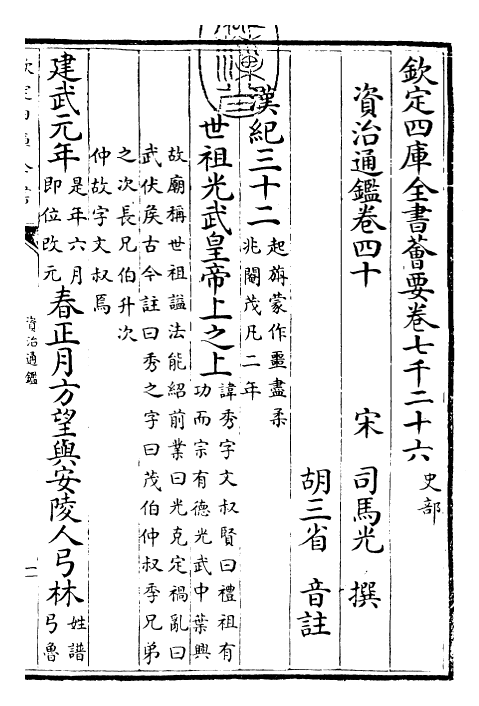 欽定四庫全書薈要卷七千二十六 史部
資治通鑑卷四十 宋 司馬光 撰
胡三省 音註
漢紀三十二 起旃蒙作噩盡柔
兆閹茂凡二年
世祖光武皇帝上之上 諱秀字文叔賢曰禮祖有
功而宗有德光武中葉興
故廟稱世祖謚法能紹前業曰光克定禍亂曰
武伏侯古今註曰秀之字曰茂伯仲叔季兄弟
之次長兄伯升次
仲故字文叔焉
建武元年 是年六月
即位改元
春正月方望與安陵人弓林 姓譜
弓魯
資治通鑑
一